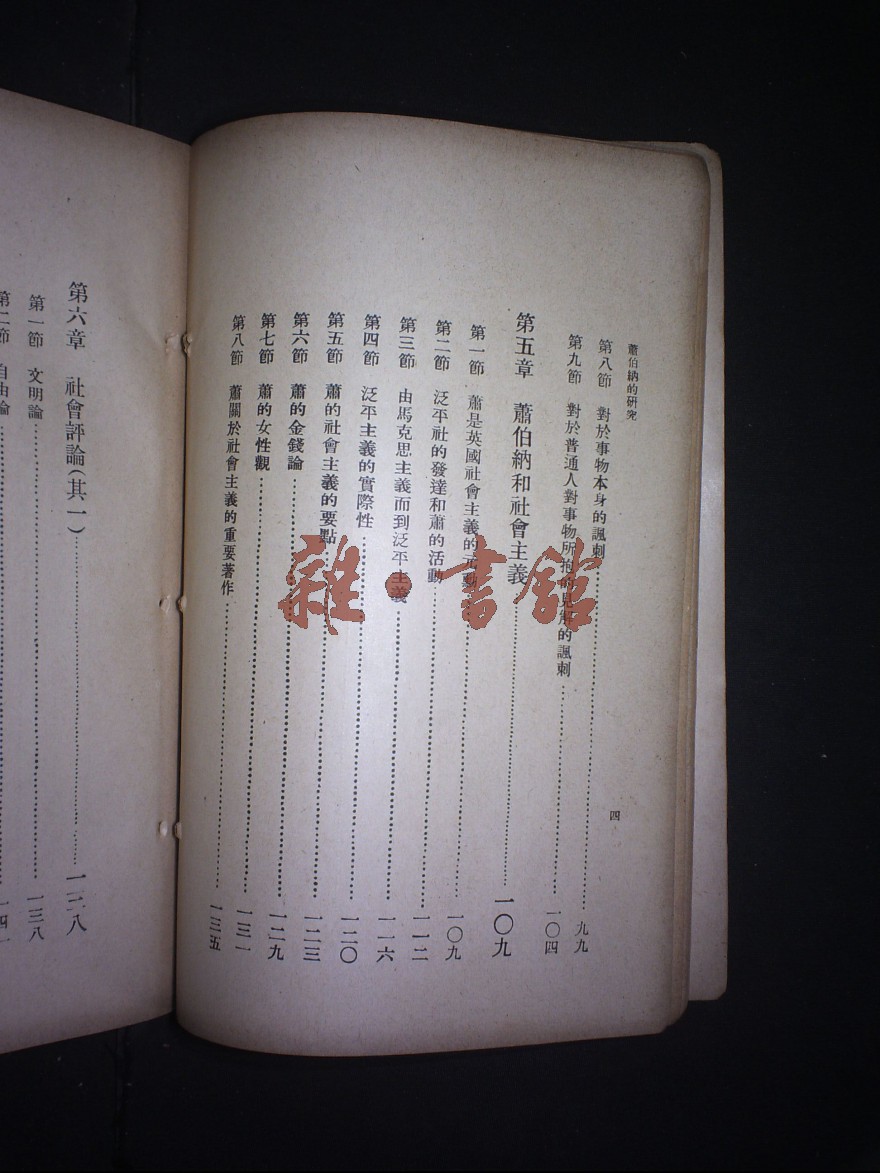 蕭伯納的研究
第八節 對於事物本身的諷刺……九九
第九節 對於普通人對事物所抱的見解的諷刺……一〇四
第五章 蕭伯納和社會主義……一〇九
第一節 蕭是英國社會主義的元勳……一〇九
第二節 泛平社的發達和蕭的活動……一一二
第三節 由馬克思主義而到泛平主義……一一六
第四節 泛平主義的實際性……一二〇
第五節 蕭的社會主義的要點……一二三
第六節 蕭的金錢論……一二九
第七節 蕭的女性觀……一三一
第八節 蕭關於社會主義的重要著作……一三五
四
第六章 社會評論(其一)……一三八
第一節 文明論……一三八
第二節 自由論……一四一
雜·書館